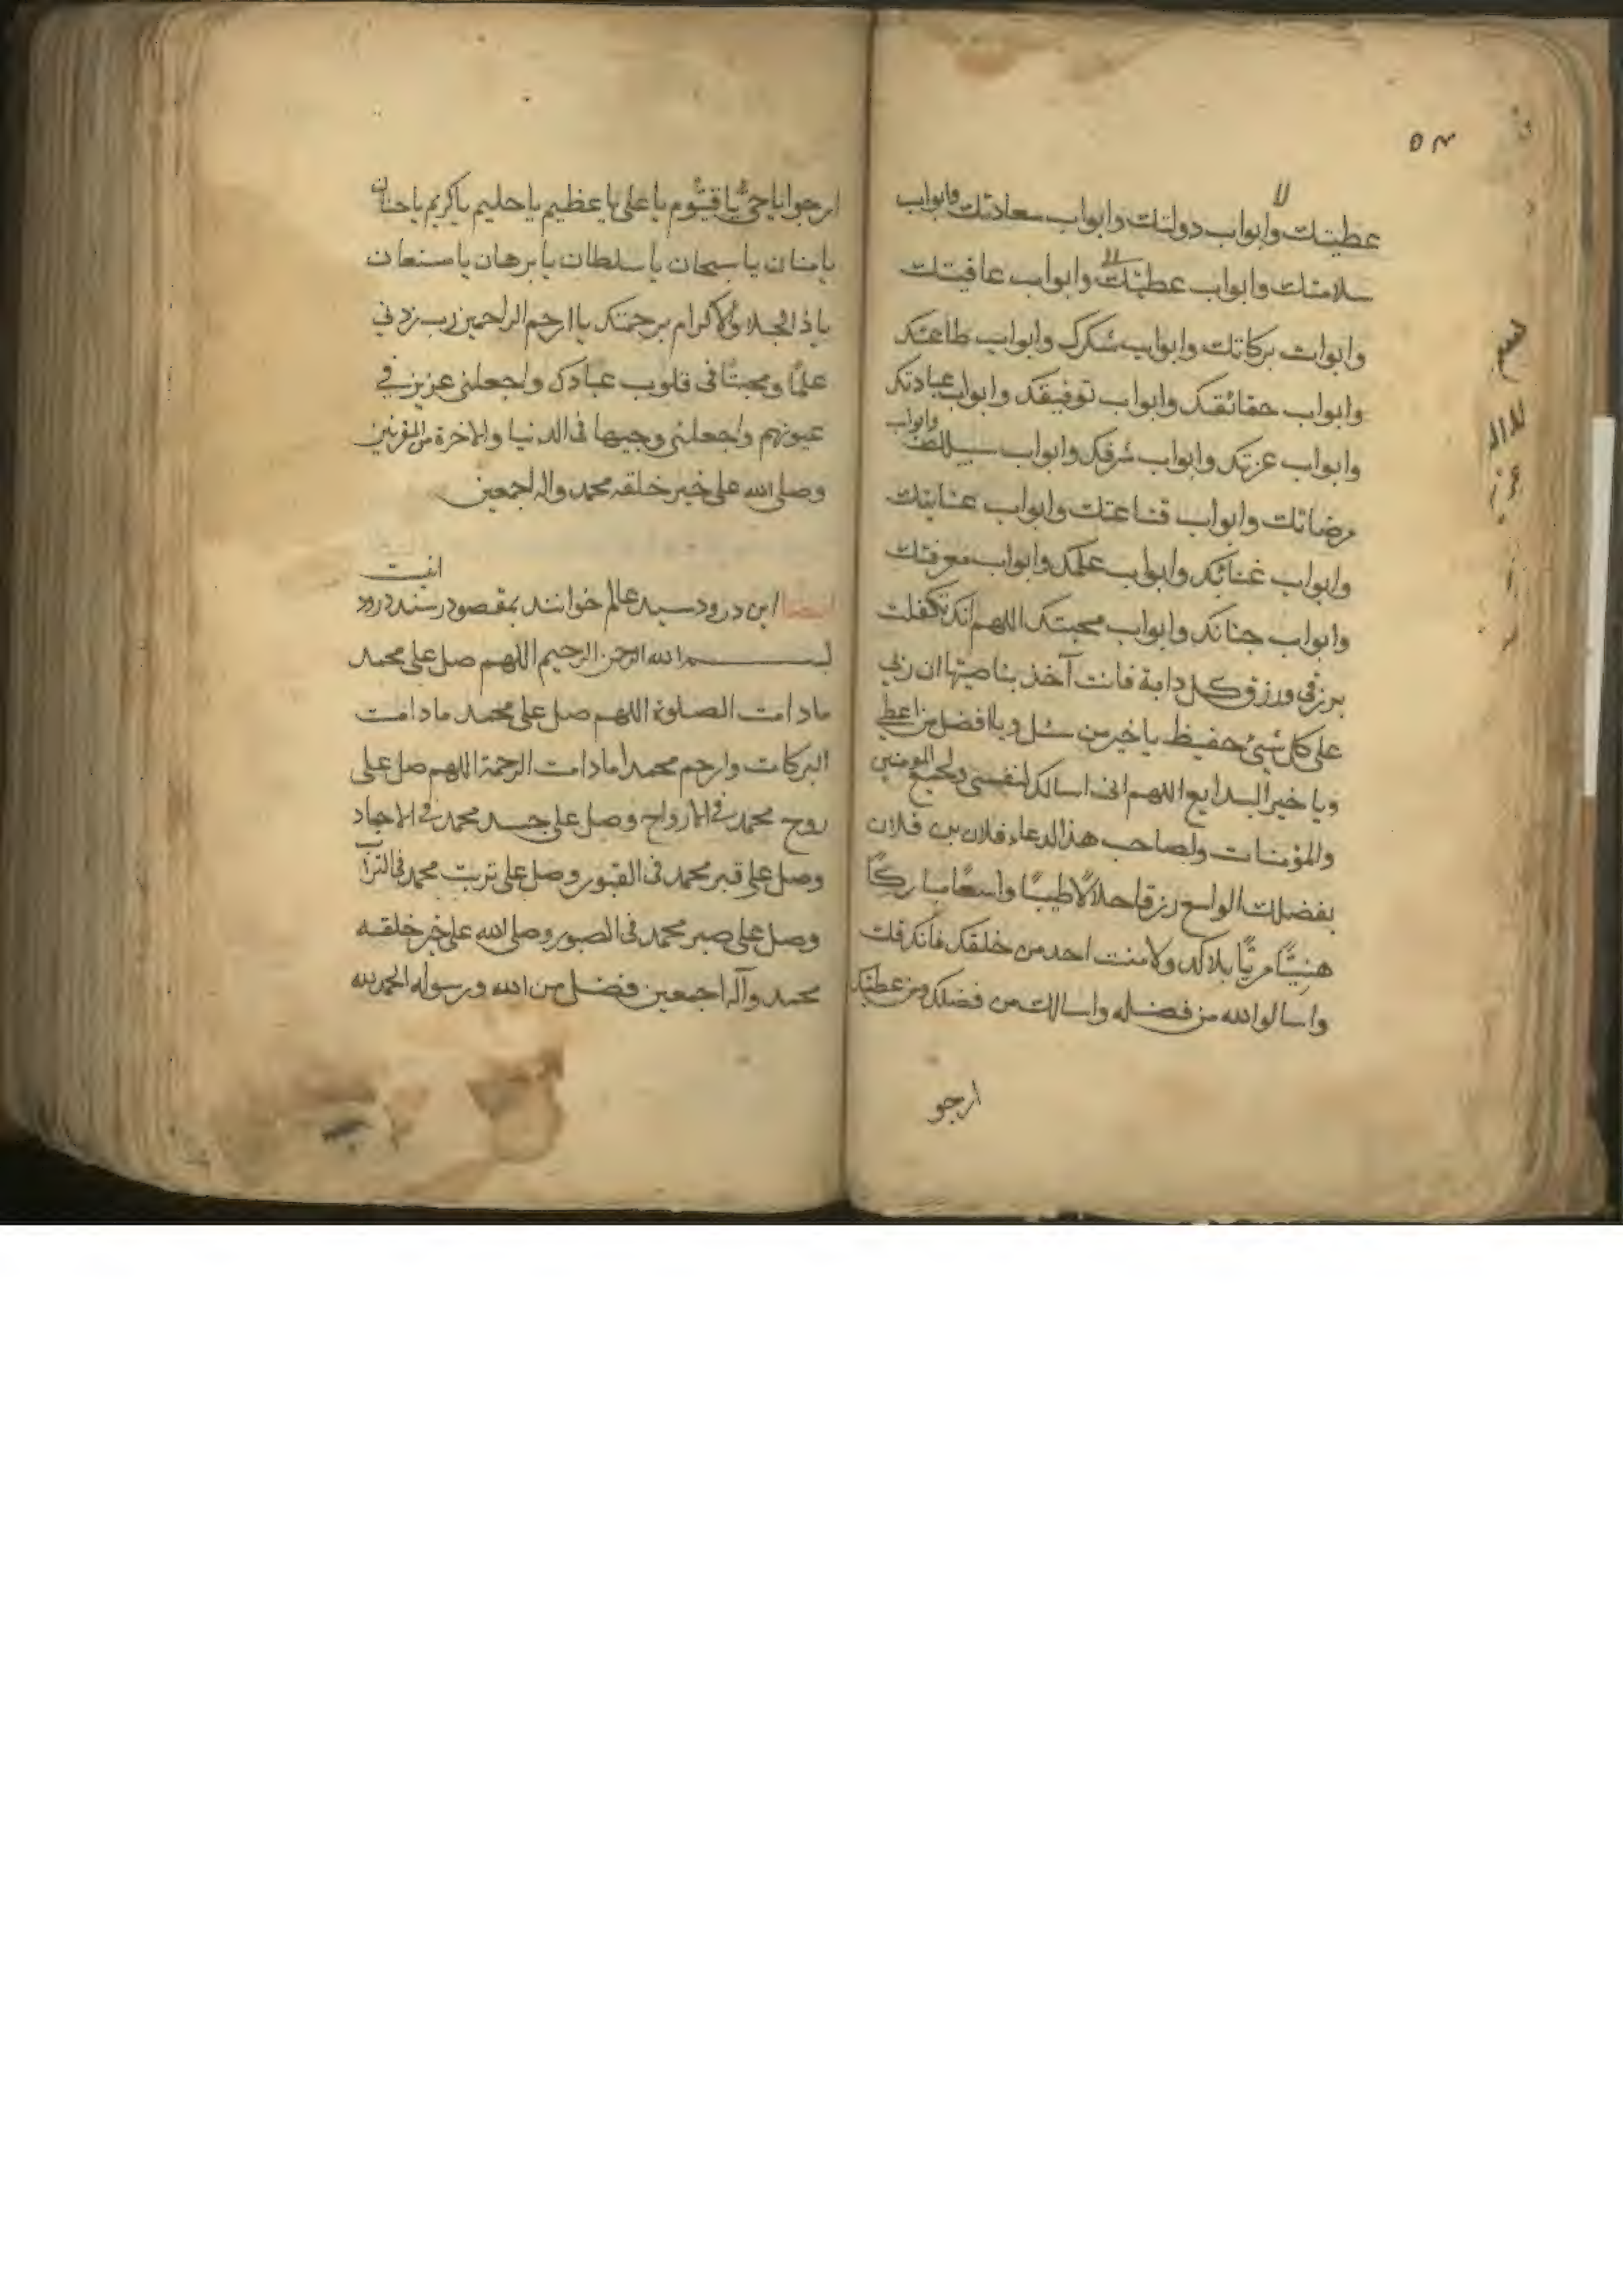 عطيتك وابواب دولتك وابواب سعادتك وابواب
سلامتك وابواب عطيتك وابواب عافيتك
وابواب بركاتك وابواب شكرك وابواب طاعتك
وابواب حقائقك وابواب توفيقك وابواب عبادتك
وابواب عزتك وابواب شرفك وابواب وابواب
مرضاتك وابواب قناعتك وابواب عنايتك
وابواب غنائك وابواب علمك وابواب معرفتك
وابواب جنانك وابواب محبتك اللهم انك تكفلت
برزقى ورزق كل دابة فانت آخذ بناصيتها ان ربى
على كل شئ حفيظ يا خير من سئل ويا افضل من اعطى
ويا خير البدايع اللهم انى اسالك لنفسى ولجميع المومنين
والمؤمنات ولصاحب هذا الدعاء فلان بن فلان
بفضلك الواسع رزقا حلالًا طيبًا واسعًا مباركًا
هنيئًا مريًا بلا كد ولا منت احد من خلقك فانك قلت
واسالوا الله من فضله واسالك من فضلك ومن عطيتك
ارجو
ارجوا يا حى يا قيوم يا على يا عظيم يا حليم يا كريم يا حنان
يا منان يا سبحان يا سلطان يا برهان يا مستعان
يا ذا الجلال والاكرام برحمتك يا ارحم الراحمين رب زدنى
علمًا ومحبتًا فى قلوب عبادك واجعلنى عزيز فى
عيونهم واجعلنى وجيها فى الدنيا والاخرة من المقربين
وصلى الله على خير خلقه محمد واله اجمعين
ايضا اين درود سيد عالم خوانند بمقصود رسند درود
اينست
بسم الله الرحمن الرحيم اللهم صل على محمد
مادامت الصلوة اللهم صل على محمد مادامت
البركات وارحم محمدا مادامت الرحمة اللهم صل على
روح محمد فى الارواح وصل على جسد محمد فى الاجساد
وصل على قبر محمد فى القبور وصل على تربت محمد فى التراب
وصل على صبر محمد فى الصبور وصلى الله على خير خلقه
محمد وآله اجمعين فضل من الله ورسوله الحمد لله